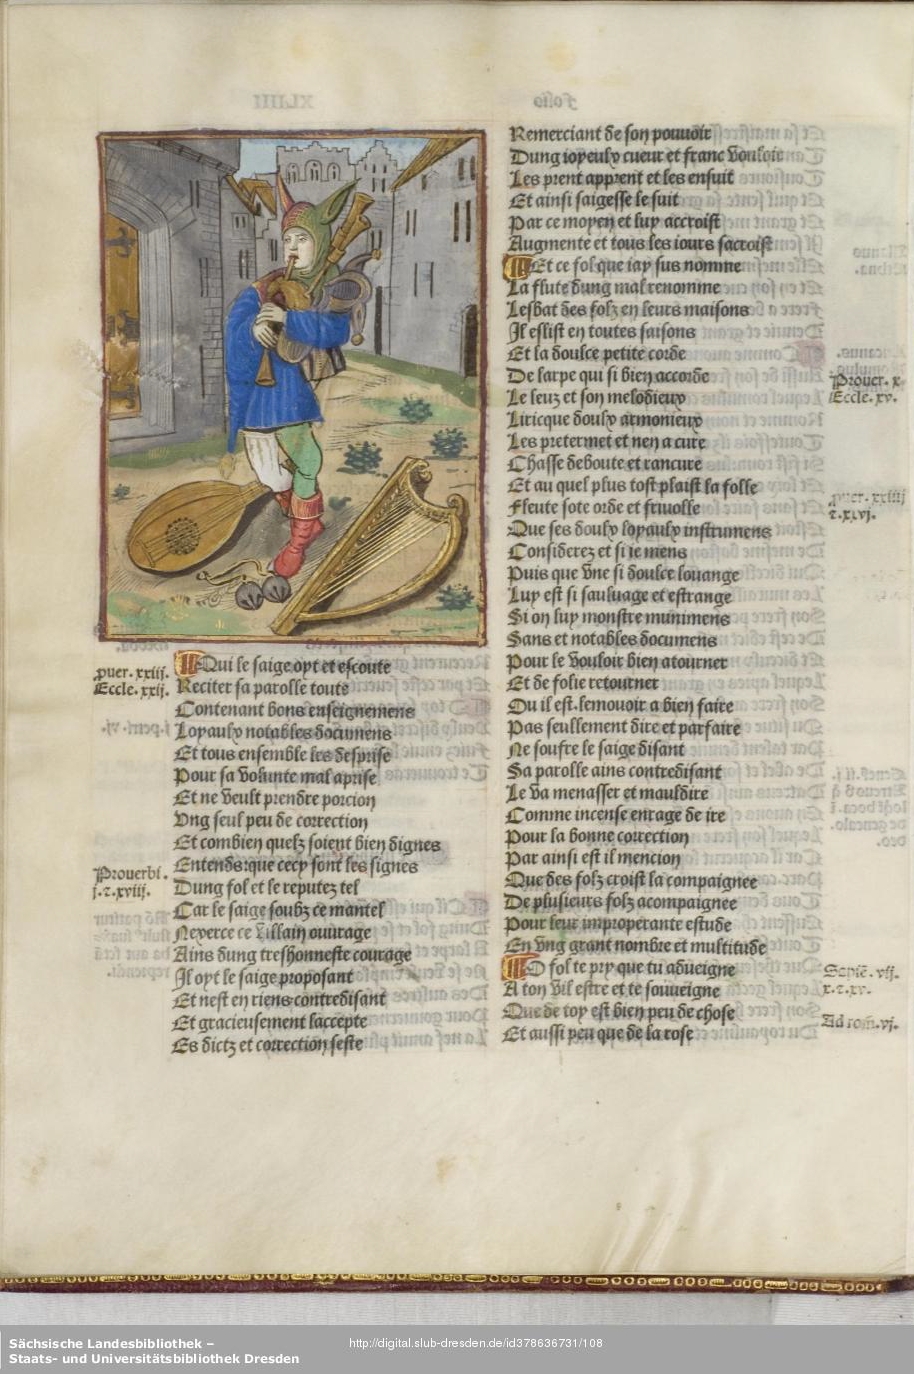 puer. xxiii.
Eccle. xxii.
Qui le saige oyt et escoute
Reciter sa parolle toute
Contenant bons enseignemens
Loyaulx notables documens
Et tous ensemble les desprise
Pour sa volunte mal aprise
Et ne veult prendre porcion
Vng seul peu de correction
Et combien quelz soient bien dignes
Entends: que cecy sont les signes
Proverbi.
i. z. xviij.
Dung fol et le reputez tel
Car le saige soubz ce mantel
Nexerce ce villain ouurage
Ains dung treshonneste courage
Il oyt le saige proposant
Et nest en riens contredisant
Et gracieusement laccepte
Es dictz et correction seste
Remerciant de son pouuoir
Dung ioyeulx cueur et franc vouloir
Les prent apprent et les ensuit
Et ainsi saigesse le suit
Par ce moyen et luy accroist
Augmente et tous les iours sacroist
Et ce fol que iay sus nomme
La flute dung mal renomme
Lesbat des folz en leurs maisons
Il eslist en toutes saisons
Et la doulce petite corde
De larpe qui si bien accorde
Prouer. x.
Eccle. xv.
Le leuz et son melodieux
Liricque doulx armonieux
Les pretermet et nen a cure
Chasse deboute et rancure
Et au quel plus tost plaist la folle
puer. xxiiij
z. xlvj.
Fleute sote orde et friuolle
Que ses doulx loyaulx instrumens
Considerez et si ie mens
Puis que vne si doulce louange
Luy est si sauluage et estrange
Si on luy monstre munimens
Sans et notables documens
Pour le vouloir bien atourner
Et de folie retourner
Ou il est. lemouoir a bien faire
Pas seullement dire et parfaire
Ne soufre le saige disant
Sa parolle ains contredisant
Le va menasser et mauldire
Comme incense enrage de ire
Pour la bonne correction
Par ainsi est il mencion
Que des folz croist la compaignee
De plusieurs folz acompaignee
Pour leur improperante estude
En vng grant nombre et multitude
O fol te pry que tu adueigne
A ton vil estre et te souueigne
Que de toy est bien peu de chose
Et aussi peu que de la rose
vij.
x. z. xv.
Ad rom. vj.
Sächsische Landesbibliothek –
Staats- und Universitätsbibliothek Dresden
http://digital.slub-dresden.de/id378636731/108